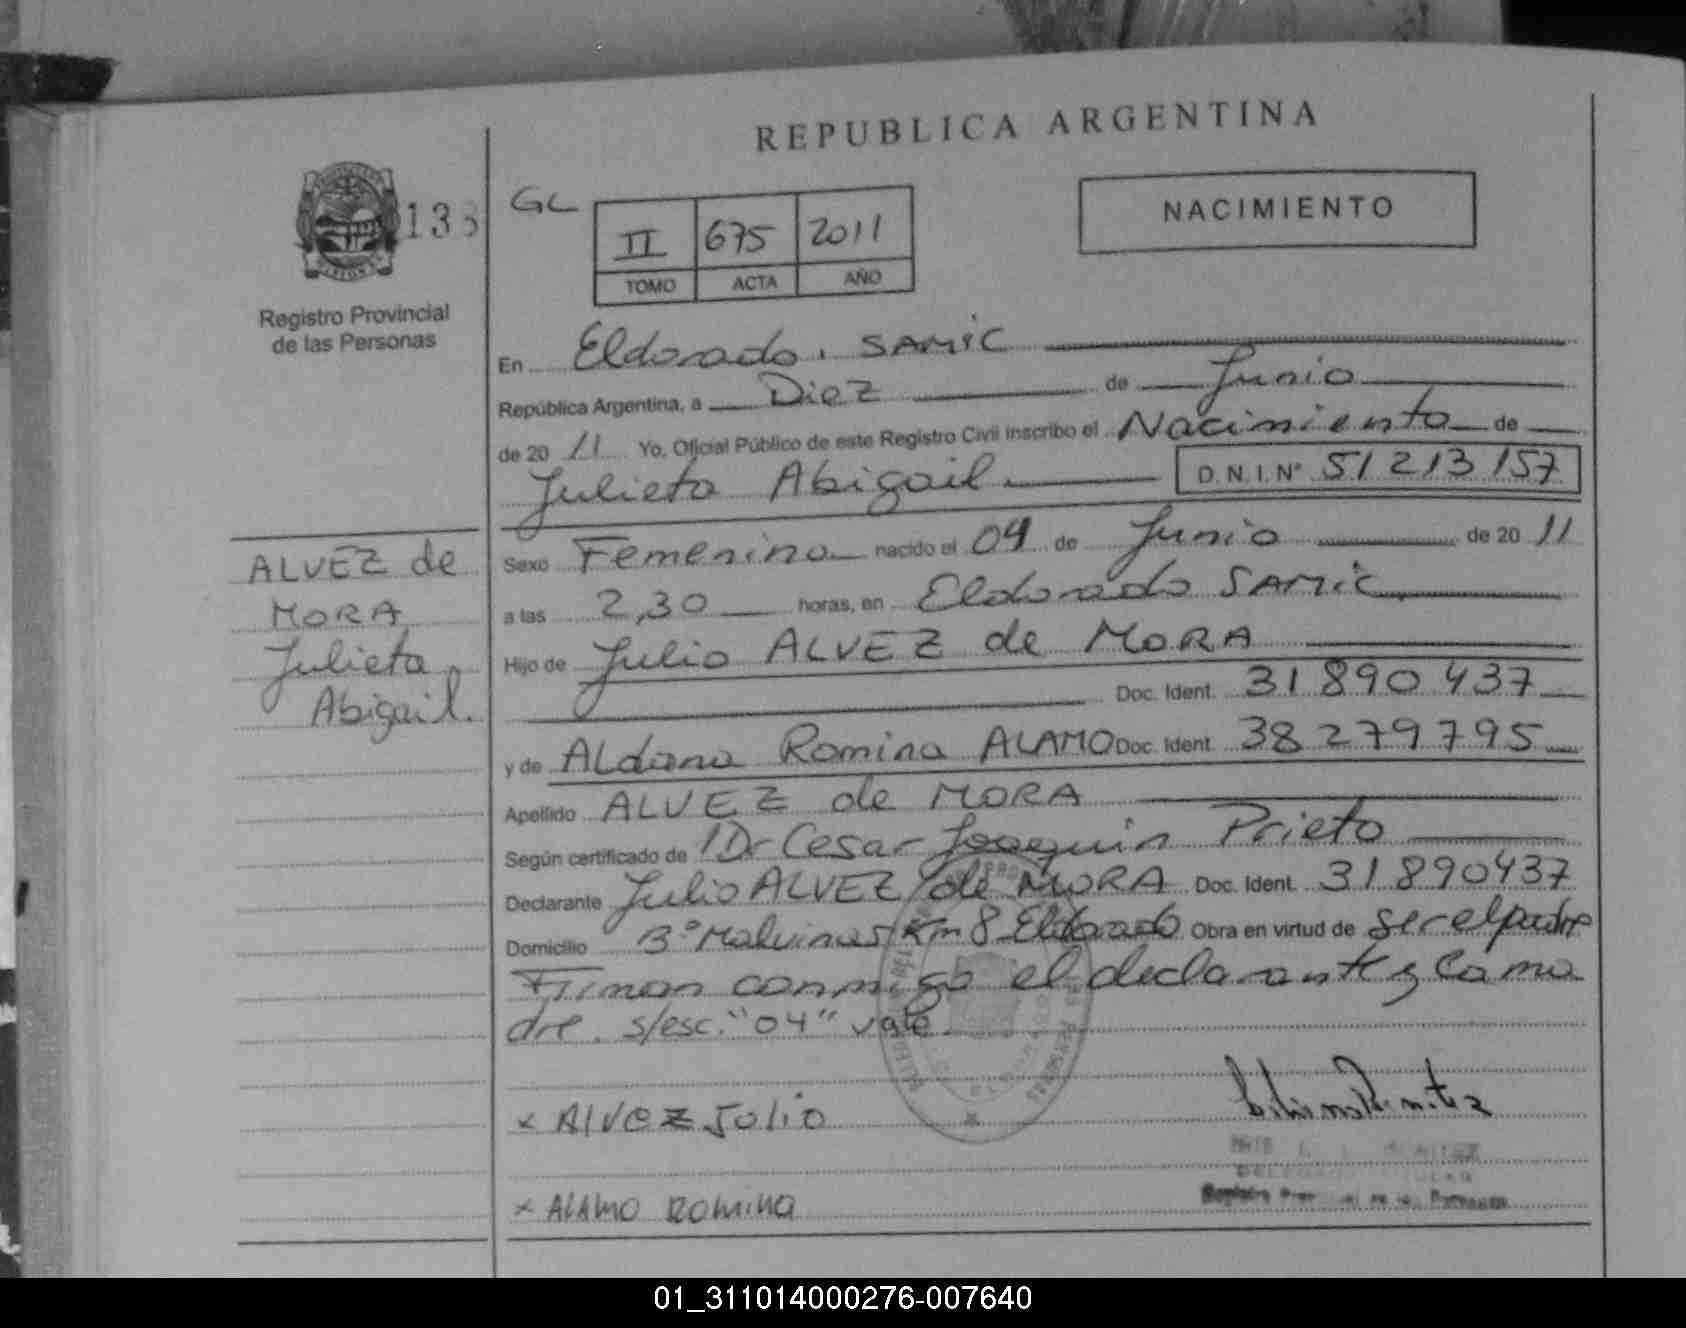 REPUBLICA ARGENTINA
GL
II 675 2011
TOMO ACTA AÑO
NACIMIENTO
Registro Provincial
de las Personas
En Eldorado, SAMIC
República Argentina, a Diez de Junio
de 20 11 Yo, Oficial Público de este Registro Civil inscribo el Nacimiento de
Julieta Abigail D.N.I.Nº 51 213 157
Sexo Femenino nacido el 04 de Junio de 20 11
a las 2,30 horas, en Eldorado SAMIC
Hijo de Julio ALVEZ de MORA
Doc. Ident. 31 890 437
y de Aldana Romina ALAMO Doc. Ident. 38 279 795
Apellido ALVEZ de MORA
Según certificado de Dr Cesar Joaquin Prieto
Declarante Julio ALVEZ de MORA Doc. Ident. 31 890437
Domicilio Bº Malvinas Km 8 Eldorado Obra en virtud de ser el padre
Firman conmigo el declarante y la ma
dre. s/esc. "04" vale.
x ALVEZ JULIO
x ALAMO ROMINA
ALVEZ de
MORA
Julieta
Abigail.
01_311014000276-007640